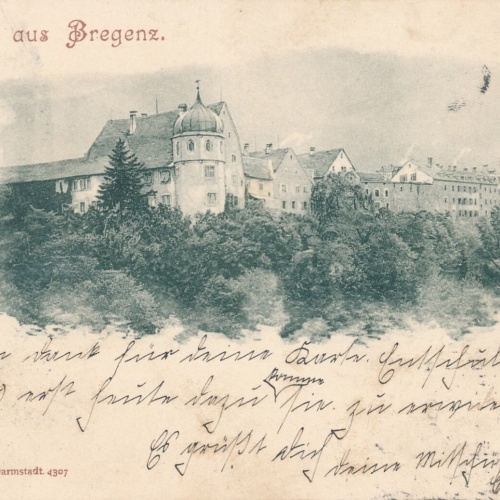 aus Bregenz.
dank für deine Karte. Entschul
erst heute dazu komme sie zu erwie
Es grüßt dich deine Mitschü
armstadt. 4307